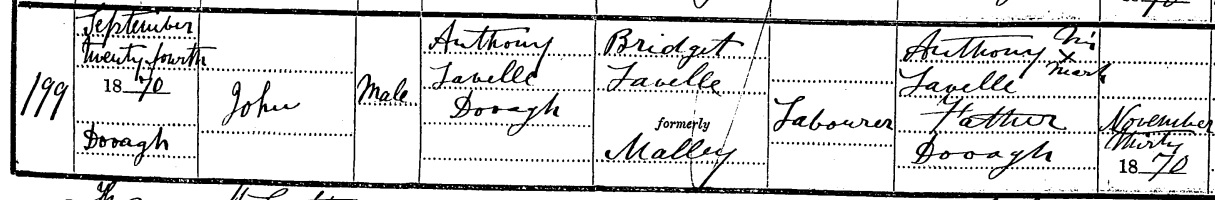 199
September
twenty fourth
1870
Dooagh
John
Male
Anthony
Lavelle
Dooagh
Bridget
Lavelle
formerly
Malley
Labourer
Anthony his
x
Lavelle mark
Father
Dooagh
November
thirty
1870